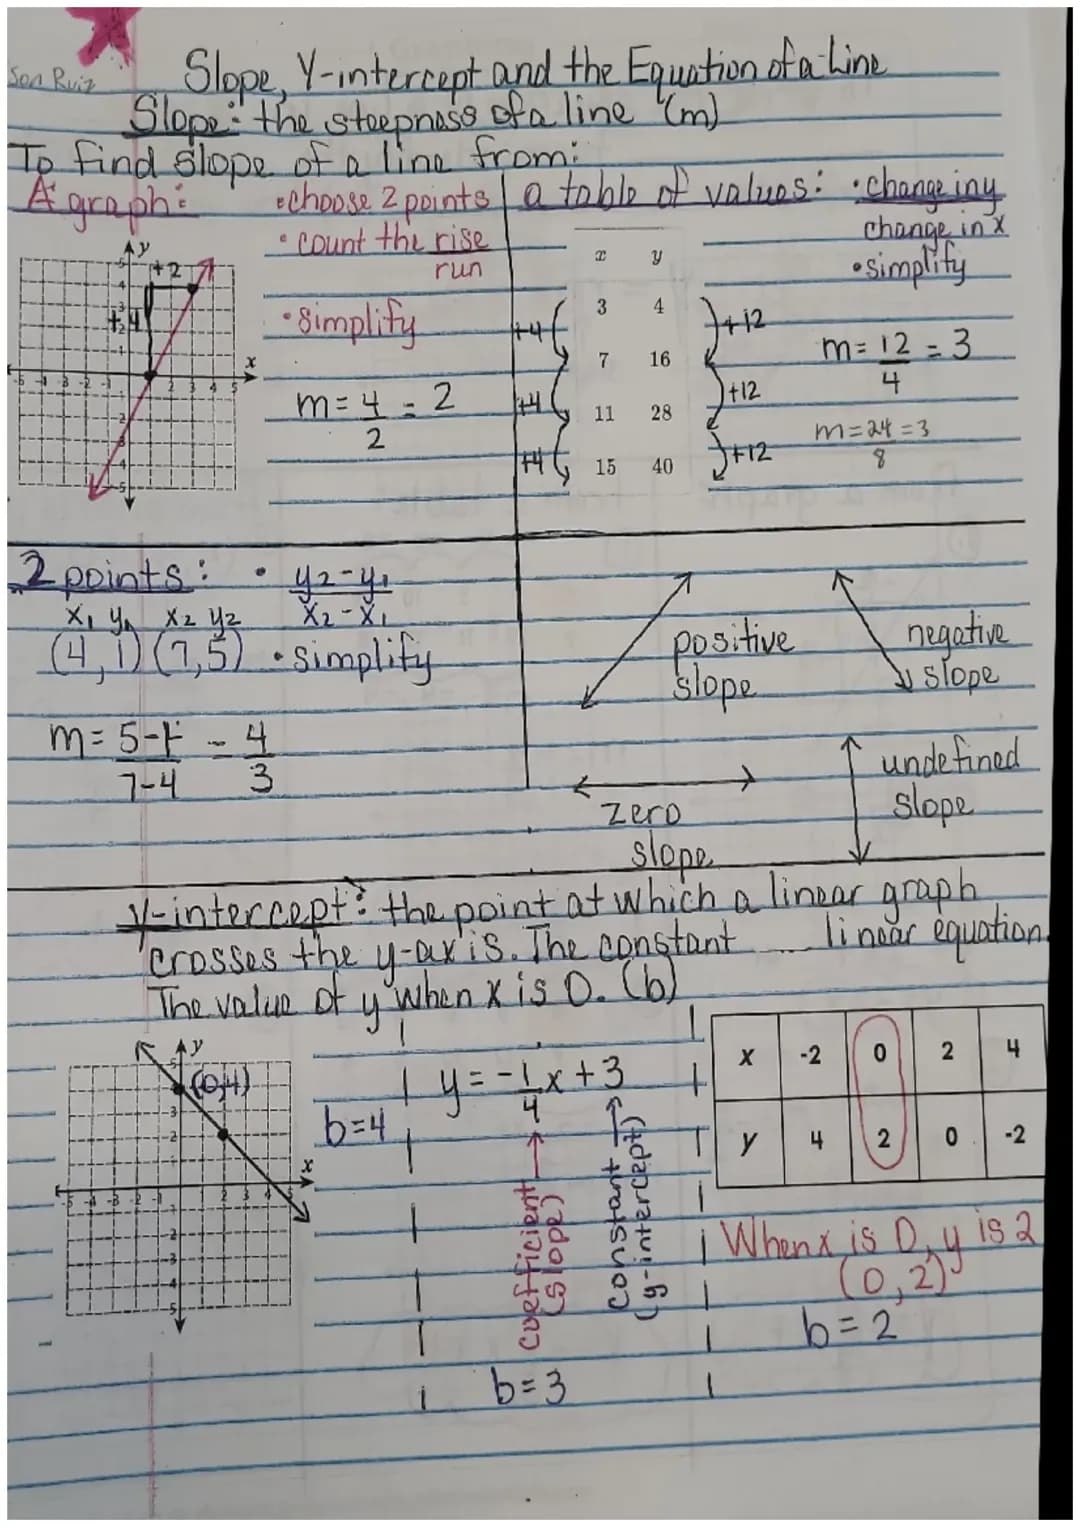 Son Ruiz
Slope, Y-intercept and the Equation of a Line
Slope: the steepness of a line (m)
To find slope of a line from:
A graph:
• choose 2 points
• count the rise
run
• simplify
m = 4 = 2
2
y
+2
+4
x
a table of values: • change in y
change in x
• simplify
x y
3 4
7 16
11 28
15 40
+4
+4
+4
+12
+12
+12
m = 12 = 3
4
m = 24 = 3
8
2 points: • y2 - y1
x2 - x1
x1 y1 x2 y2
(4, 1) (7, 5) • simplify
m = 5-1 = 4
7-4 3
positive
slope
negative
slope
zero
slope
undefined
slope
y-intercept: the point at which a linear graph
crosses the y-axis. The constant linear equation.
The value of y when x is 0. (b)
y
(0,4)
x
b=4
y = -1x + 3
4
coefficient
(slope)
constant
(y-intercept)
b=3
x -2 0 2 4
y 4 2 0 -2
When x is 0, y is 2
(0, 2)
b = 2